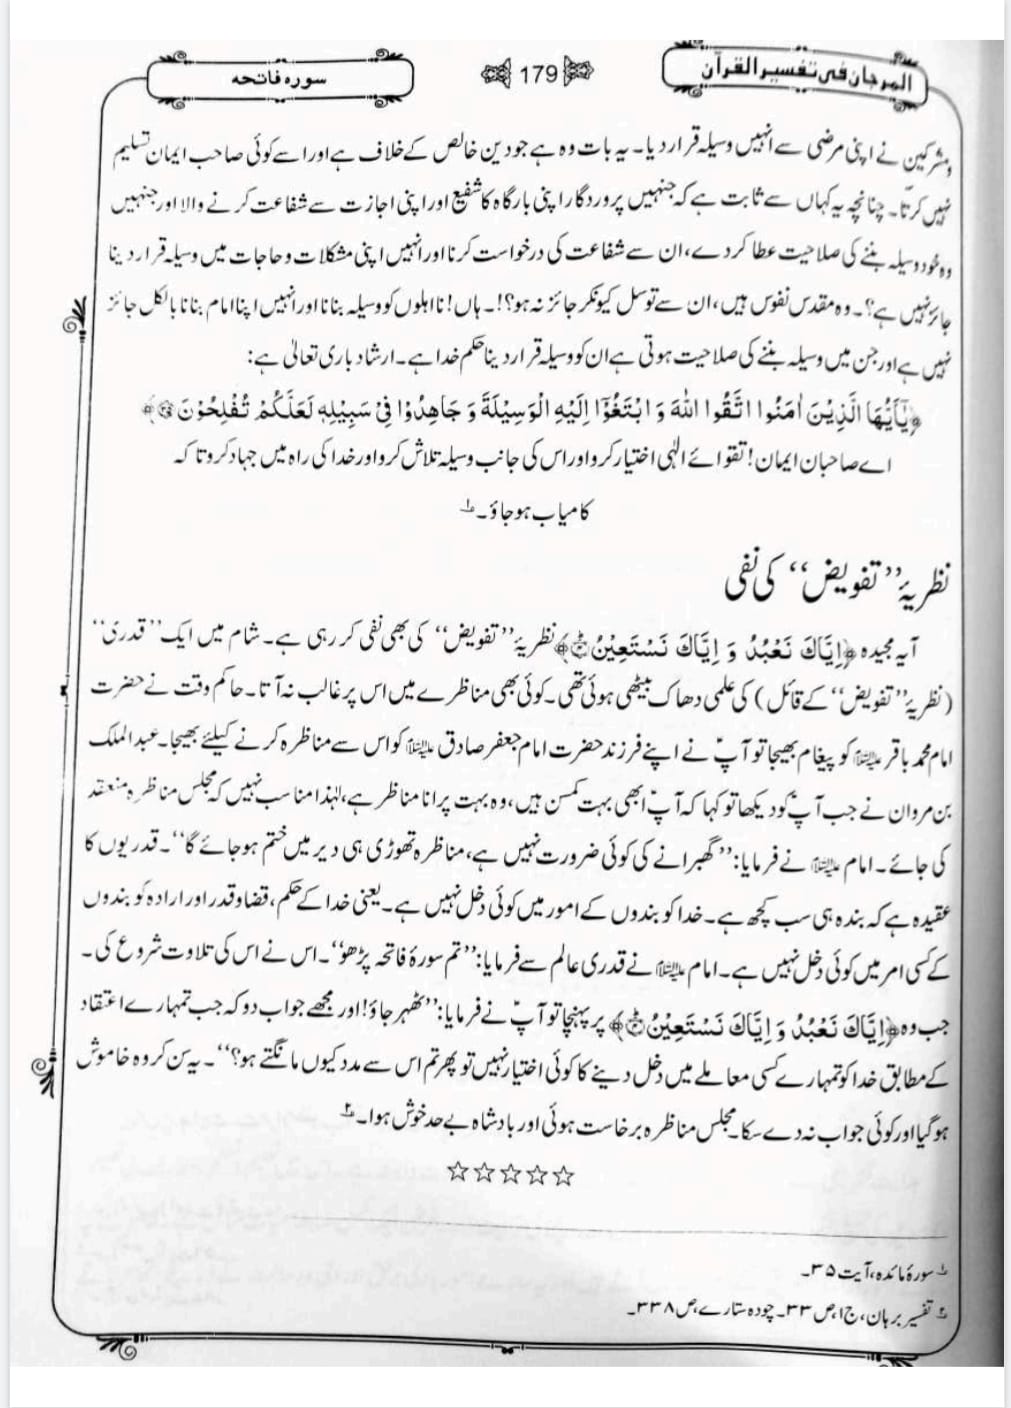 المرجان فی تفسیر القرآن
179
سورہ فاتحہ
ومشرکین نے اپنی مرضی سے انہیں وسیلہ قرار دیا۔ یہ بات وہ ہے جو دین خالص کے خلاف ہے اور اسے کوئی صاحب ایمان تسلیم
نہیں کرتا۔ چنانچہ یہ کہاں سے ثابت ہے کہ جنہیں پروردگار اپنی بارگاہ کا شفیع اور اپنی اجازت سے شفاعت کرنے والا اور جنہیں
وہ خود وسیلہ بننے کی صلاحیت عطا کر دے، ان سے شفاعت کی درخواست کرنا اور انہیں اپنی مشکلات و حاجات میں وسیلہ قرار دینا
جائز نہیں ہے؟۔ وہ مقدس نفوس ہیں، ان سے توسل کیونکر جائز نہ ہو؟!۔ ہاں! نااہلوں کو وسیلہ بنانا اور انہیں اپنا امام بنانا بالکل جائز
نہیں ہے اور جن میں وسیلہ بننے کی صلاحیت ہوتی ہے ان کو وسیلہ قرار دینا حکم خدا ہے۔ ارشاد باری تعالیٰ ہے:
﴿يٰٓاَيُّهَا الَّذِيْنَ اٰمَنُوا اتَّقُوا اللّٰهَ وَ ابْتَغُوْٓا اِلَيْهِ الْوَسِيْلَةَ وَ جَاهِدُوْا فِيْ سَبِيْلِهٖ لَعَلَّكُمْ تُفْلِحُوْنَ ۝۳۵﴾
اے صاحبان ایمان! تقوائے الٰہی اختیار کرو اور اس کی جانب وسیلہ تلاش کرو اور خدا کی راہ میں جہاد کرو تا کہ
کامیاب ہو جاؤ۔ ۱؎
نظریۂ ’’تفویض‘‘ کی نفی
آیہ مجیدہ ﴿اِيَّاكَ نَعْبُدُ وَ اِيَّاكَ نَسْتَعِيْنُ ۝﴾ نظریۂ ’’تفویض‘‘ کی بھی نفی کر رہی ہے۔ شام میں ایک ’’قدری‘‘
(نظریۂ ’’تفویض‘‘ کے قائل) کی علمی دھاک بیٹھی ہوئی تھی۔ کوئی بھی مناظرے میں اس پر غالب نہ آتا۔ حاکم وقت نے حضرت
امام محمد باقر علیہ السلام کو پیغام بھیجا تو آپؑ نے اپنے فرزند حضرت امام جعفر صادق علیہ السلام کو اس سے مناظرہ کرنے کیلئے بھیجا۔ عبدالملک
بن مروان نے جب آپؑ کو دیکھا تو کہا کہ آپؑ ابھی بہت کمسن ہیں، وہ بہت پرانا مناظر ہے، لہٰذا مناسب نہیں کہ مجلس مناظرہ منعقد
کی جائے۔ امام علیہ السلام نے فرمایا: ’’گھبرانے کی کوئی ضرورت نہیں ہے، مناظرہ تھوڑی ہی دیر میں ختم ہو جائے گا‘‘۔ قدریوں کا
عقیدہ ہے کہ بندہ ہی سب کچھ ہے۔ خدا کو بندوں کے امور میں کوئی دخل نہیں ہے۔ یعنی خدا کے حکم، قضا و قدر اور ارادہ کو بندوں
کے کسی امر میں کوئی دخل نہیں ہے۔ امام علیہ السلام نے قدری عالم سے فرمایا: ’’تم سورۂ فاتحہ پڑھو‘‘۔ اس نے اس کی تلاوت شروع کی۔
جب وہ ﴿اِيَّاكَ نَعْبُدُ وَ اِيَّاكَ نَسْتَعِيْنُ ۝﴾ پر پہنچا تو آپؑ نے فرمایا: ’’ٹھہر جاؤ! اور مجھے جواب دو کہ جب تمہارے اعتقاد
کے مطابق خدا کو تمہارے کسی معاملے میں دخل دینے کا کوئی اختیار نہیں تو پھر تم اس سے مدد کیوں مانگتے ہو؟‘‘۔ یہ سن کر وہ خاموش
ہو گیا اور کوئی جواب نہ دے سکا۔ مجلس مناظرہ برخاست ہوئی اور بادشاہ بے حد خوش ہوا۔ ۲؎
☆☆☆☆☆
۱؎ سورۂ مائدہ، آیت ۳۵۔
۲؎ تفسیر برہان، ج ۱، ص ۳۳۔ چودہ ستارے، ص ۳۳۸۔